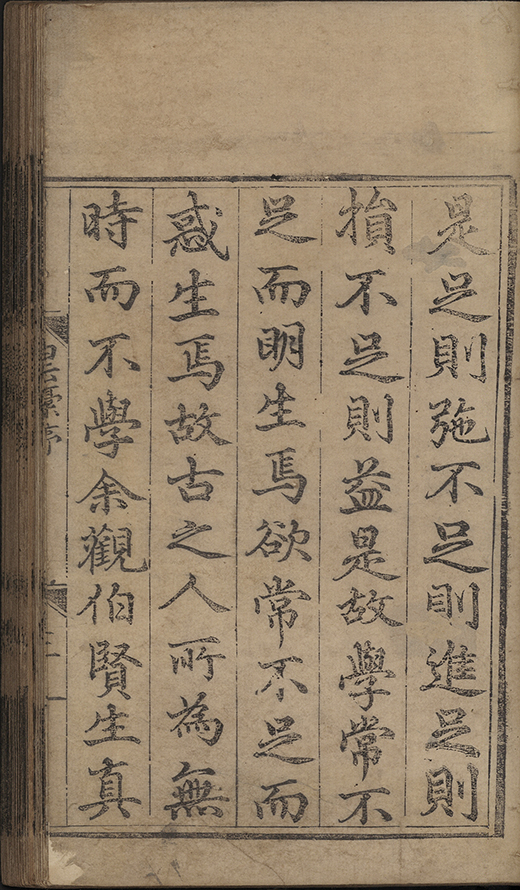 是足則弛不足則進足則
損不足則益是故學常不
足而明生焉欲常不足而
惑生焉故古之人所為無
時而不學余觀伯賢生真
白雲稾序